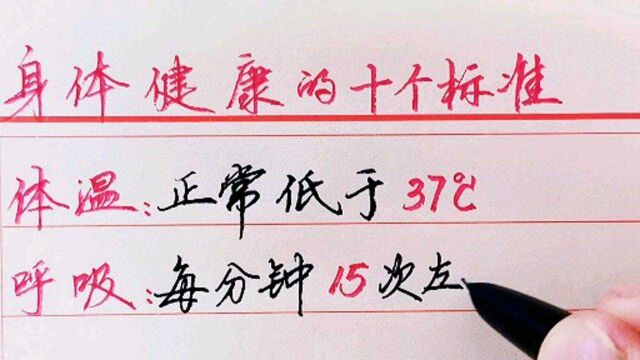 身体健康的十个标准
体温:正常低于37℃
呼吸:每分钟15次左